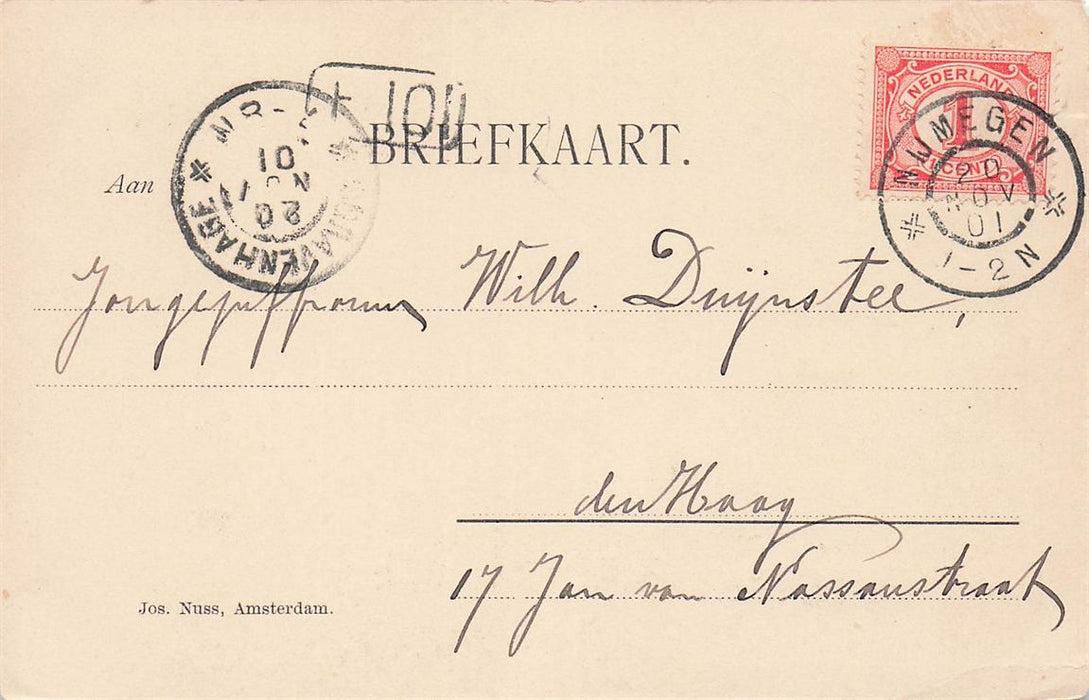 + 100
BRIEFKAART.
NEDERLAND
1
CENT
NIJMEGEN
20
NOV
01
1-2N
'S GRAVENHAGE
20
01
Aan
Jongejuffrouw Wilh. Duijnstee,
den Haag
17 Jan van Nassaustraat
Jos. Nuss, Amsterdam.